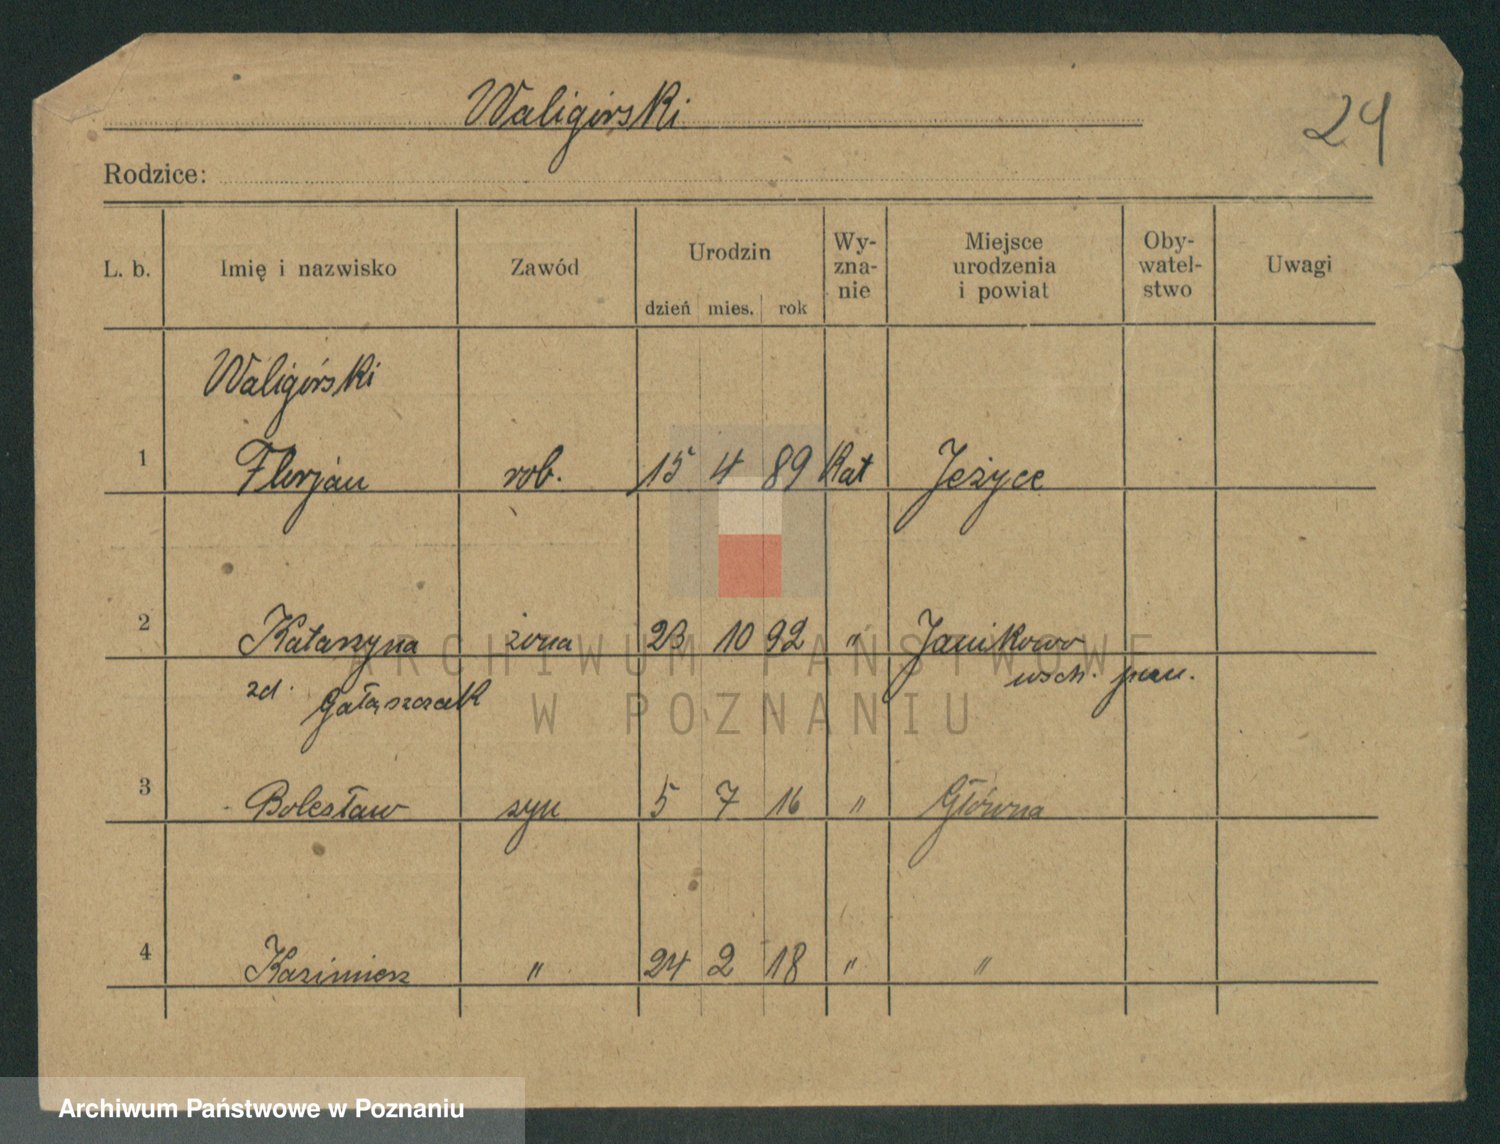 Waligórski
24
Rodzice:
L. b. Imię i nazwisko Zawód Urodzin dzień mies. rok Wy-zna-nie Miejsce urodzenia i powiat Oby-watel-stwo Uwagi
Waligórski
1 Florjan rob. 15 4 89 Kat Jeżyce
2 Katarzyna żona 23 10 92 " Janikowo
zd. Gałąszczak wsch. pow.
3 Bolesław syn 5 7 16 " Główna
4 Kazimierz " 24 2 18 " "
ARCHIWUM PAŃSTWOWE
W POZNANIU
Archiwum Państwowe w Poznaniu